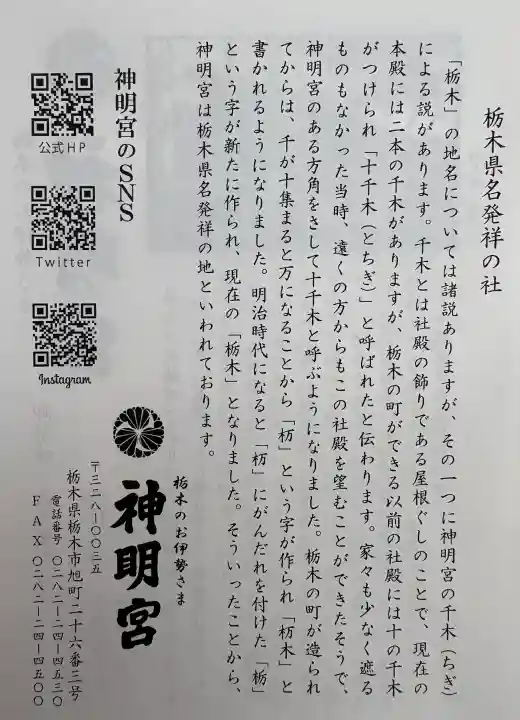 栃木県名発祥の社
「栃木」の地名については諸説ありますが、その一つに神明宮の千木（ちぎ）
による説があります。千木とは社殿の飾りである屋根ぐしのことで、現在の
本殿には二本の千木がありますが、栃木の町ができる以前の社殿には十の千木
がつけられ「十千木（とちぎ）」と呼ばれたと伝わります。家々も少なく遮る
ものもなかった当時、遠くの方からもこの社殿を望むことができたそうで、
神明宮のある方角をさして十千木と呼ぶようになりました。栃木の町が造られ
てからは、千が十集まると万になることから「杤」という字が作られ「杤木」と
書かれるようになりました。明治時代になると「杤」にがんだれを付けた「栃」
という字が新たに作られ、現在の「栃木」となりました。そういったことから、
神明宮は栃木県名発祥の地といわれております。
神明宮のSNS
公式HP
Twitter
Instagram
栃木のお伊勢さま
神明宮
〒三二八－〇〇三五
栃木県栃木市旭町二十六番三号
電話番号 〇二八二－二四－四五三〇
FAX 〇二八二－二四－四五〇〇